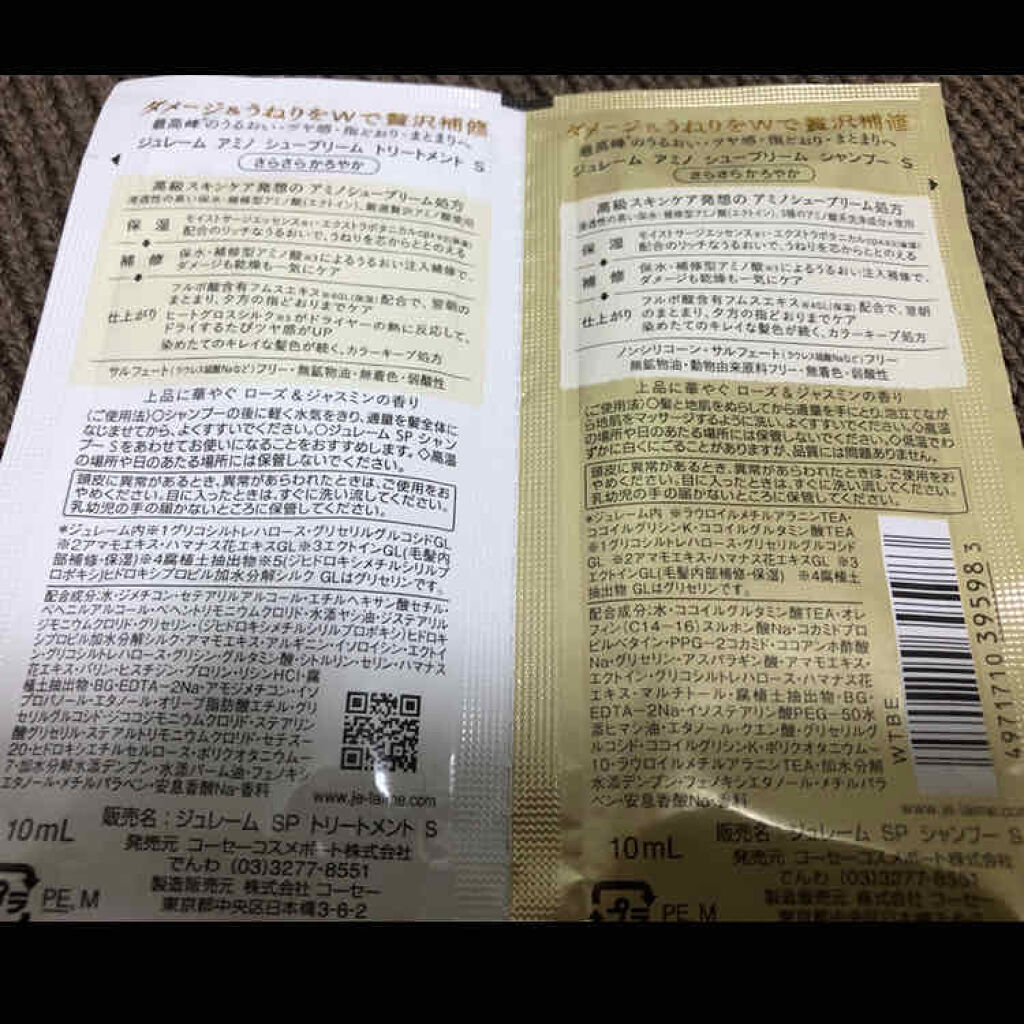 ダメージ&うねりをWで贅沢補修
最高峰*のうるおい・ツヤ感・指どおり・まとまりへ
ジュレーム アミノ シュープリーム トリートメント S
さらさらかろやか
高級スキンケア発想の アミノシュープリーム処方
浸透性の高い保水・補修型アミノ酸(エクトイン)、厳選贅沢アミノ酸使用
保湿
モイストサージエッセンス※1・エクストラボタニカル
配合のリッチなうるおいで、うねりを芯からととのえる
補修
保水・補修型アミノ酸※3によるうるおい注入補修で、
ダメージも乾燥も一気にケア
仕上がり
フルボ酸含有フムスエキス※4GL(保湿)配合で、翌朝の
まとまり、夕方の指どおりまでケア
ヒートグロスシルク※5がドライヤーの熱に反応して、
ドライするたびツヤ感がUP
染めたてのキレイな髪色が続く、カラーキープ処方
サルフェート(ラウレス硫酸Naなど)フリー・無鉱物油・無着色・弱酸性
上品に華やぐ ローズ&ジャスミンの香り
〈ご使用法〉○シャンプーの後に軽く水気をきり、適量を髪全体に
なじませてから、よくすすいでください。○ジュレーム SP シャン
プー S をあわせてお使いになることをおすすめします。◇高温
の場所や日のあたる場所には保管しないでください。
頭皮に異常があるとき、異常があらわれたときは、ご使用をお
やめください。目に入ったときは、すぐに洗い流してください。
乳幼児の手の届かないところに保管してください。
*ジュレーム内※1グリコシルトレハロース・グリセリルグルコシドGL
※2アマモエキス・ハマナス花エキスGL※3エクトインGL(毛髪内
部補修・保湿)※4腐植土抽出物※5(ジヒドロキシメチルシリルプ
ロポキシ)ヒドロキシプロピル加水分解シルク GLはグリセリンです。
配合成分:水・ジメチコン・セテアリルアルコール・エチルヘキサン酸セチル・
ベヘニルアルコール・ベヘントリモニウムクロリド・水添ヤシ油・ジステアリル
ジモニウムクロリド・グリセリン・(ジヒドロキシメチルシリルプロポキシ)ヒドロキ
シプロピル加水分解シルク・アマモエキス・アルギニン・イソロイシン・エクトイ
ン・グリコシルトレハロース・グリシン・グルタミン酸・シトルリン・セリン・ハマナス
花エキス・バリン・ヒスチジン・プロリン・リシンHCl・腐
植土抽出物・BG・EDTA-2Na・アモジメチコン・イソ
プロパノール・エタノール・オリーブ脂肪酸エチル・グリ
セリルグルコシド・ジココジモニウムクロリド・ステアリン
酸グリセリル・ステアルトリモニウムクロリド・セテスー
20・ヒドロキシエチルセルロース・ポリクオタニウムー
7・加水分解水添デンプン・水添パーム油・フェノキシ
エタノール・メチルパラベン・安息香酸Na・香料
www.je-laime.com
10mL
販売名:ジュレーム SP トリートメント S
発売元 コーセーコスメポート株式会社
でんわ (03)3277-8551
製造販売元 株式会社 コーセー
東京都中央区日本橋3-6-2
プラ
PE, M
ダメージ&うねりをWで贅沢補修
最高峰*のうるおい・ツヤ感・指どおり・まとまりへ
ジュレーム アミノ シュープリーム シャンプー S
さらさらかろやか
高級スキンケア発想の アミノシュープリーム処方
浸透性の高い保水・補修型アミノ酸(エクトイン)、3種のアミノ酸系洗浄成分※使用
保湿
モイストサージエッセンス※1・エクストラボタニカル
配合のリッチなうるおいで、うねりを芯からととのえる
補修
保水・補修型アミノ酸※3によるうるおい注入補修で、
ダメージも乾燥も一気にケア
仕上がり
フルボ酸含有フムスエキス※4GL(保湿)配合で、翌朝
のまとまり、夕方の指どおりまでケア
染めたてのキレイな髪色が続く、カラーキープ処方
ノンシリコーン・サルフェート(ラウレス硫酸Naなど)フリー
無鉱物油・動物由来原料フリー・無着色・弱酸性
上品に華やぐ ローズ&ジャスミンの香り
〈ご使用法〉○髪と地肌をぬらしてから適量を手にとり、泡立てなが
ら地肌をマッサージするように洗い、よくすすいでください。◇高温
の場所や日のあたる場所には保管しないでください。◇低温でわ
ずかに白くにごることがありますが、品質には問題ありません。
頭皮に異常があるとき、異常があらわれたときは、ご使用をお
やめください。目に入ったときは、すぐに洗い流してください。
乳幼児の手の届かないところに保管してください。
*ジュレーム内 ※ラウロイルメチルアラニンTEA・
ココイルグリシンK・ココイルグルタミン酸TEA
※1グリコシルトレハロース・グリセリルグルコシド
GL ※2アマモエキス・ハマナス花エキスGL ※3
エクトインGL(毛髪内部補修・保湿) ※4腐植土
抽出物 GLはグリセリンです。
配合成分:水・ココイルグルタミン酸TEA・オレ
フィン(C14-16)スルホン酸Na・コカミドプロ
ピルベタイン・PPG-2コカミド・ココアンホ酢酸
Na・グリセリン・アスパラギン酸・アマモエキス・
エクトイン・グリコシルトレハロース・ハマナス花
エキス・マルチトール・腐植土抽出物・BG・
EDTA-2Na・イソステアリン酸PEG-50水
添ヒマシ油・エタノール・クエン酸・グリセリルグ
ルコシド・ココイルグリシンK・ポリクオタニウムー
10・ラウロイルメチルアラニンTEA・加水分解
水添デンプン・フェノキシエタノール・メチルパラ
ベン・安息香酸Na・香料
WTBE
4971710395983
www.je-laime.com
10mL
販売名:ジュレーム SP シャンプー S
発売元 コーセーコスメポート株式会社
でんわ (03)3277-8551
製造販売元 株式会社 コーセー
東京都中央区日本橋3-6-2
プラ
PE, M